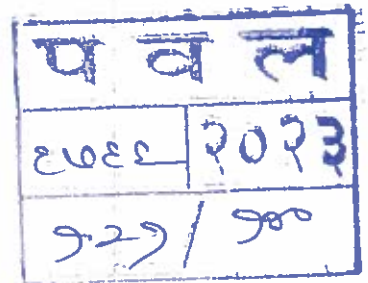 प व ल
६७६६ २०२३
१२१ / १००